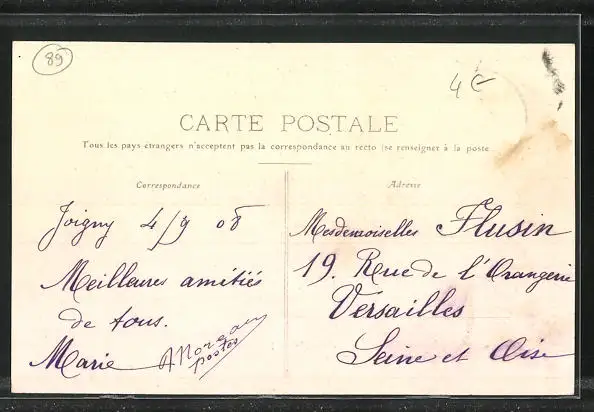 89
4€
CARTE POSTALE
Tous les pays étrangers n'acceptent pas la correspondance au recto (se renseigner à la poste
Correspondance
Adresse
Joigny 4/9 08
Meilleures amitiés
de tous.
Marie
A Moreau
postes
Mesdemoiselles Flusin
19. Rue de l'Orangerie
Versailles
Seine et Oise